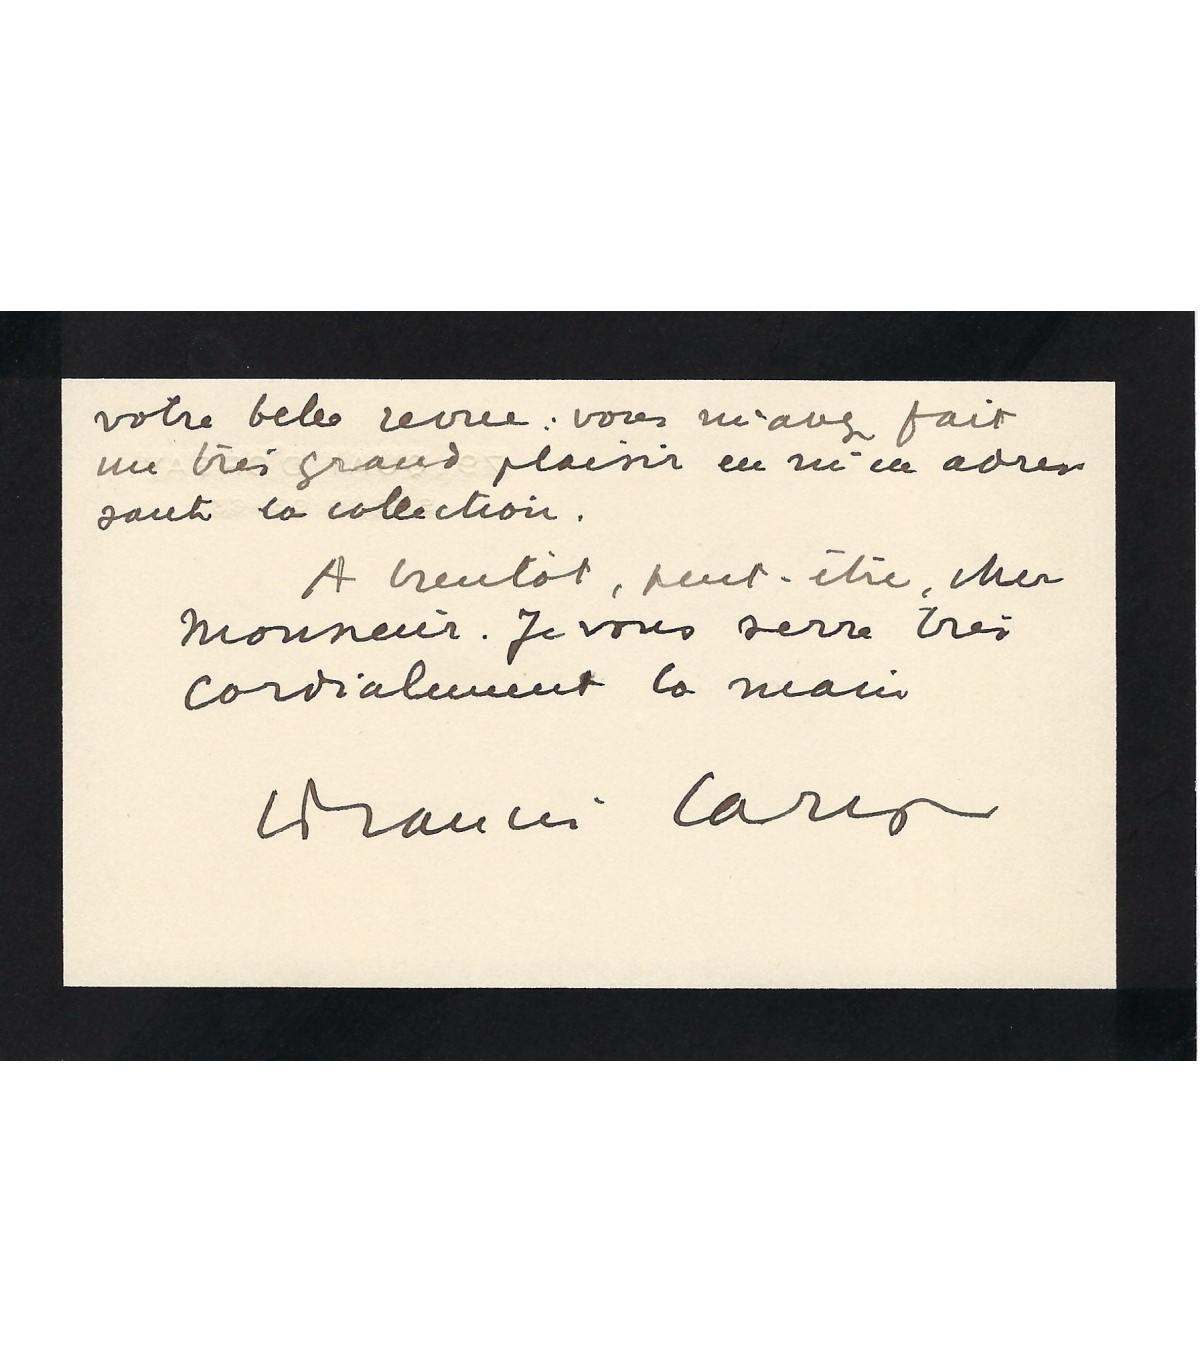 votre belle revue : vous m'avez fait
un très grand plaisir en m'en adres
sant la collection.
A bientôt, peut-être, cher
Monsieur. Je vous serre très
cordialement la main
Francis Carco